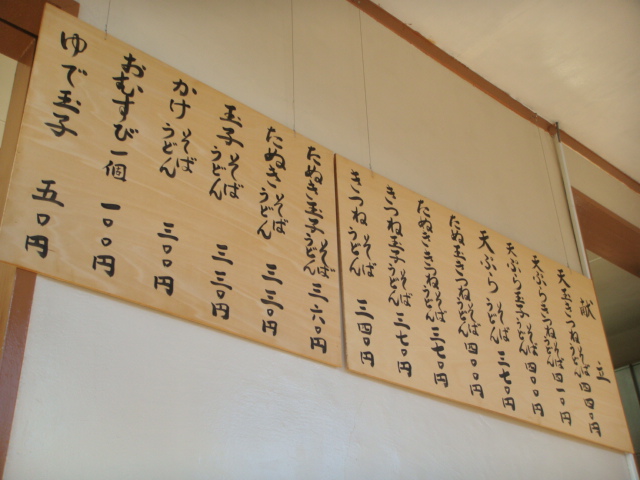 天ぷらきつねそばうどん 四〇〇円
天ぷら玉子そばうどん 四〇〇円
天ぷらそばうどん 三七〇円
たぬき玉きつねそばうどん 四〇〇円
たぬききつねそばうどん 三七〇円
きつね玉子そばうどん 三七〇円
きつねそばうどん 三四〇円
たぬき玉子そばうどん 三六〇円
たぬきそばうどん 三三〇円
玉子そばうどん 三三〇円
かけそばうどん 三〇〇円
おむすび一個 一〇〇円
ゆで玉子 五〇円